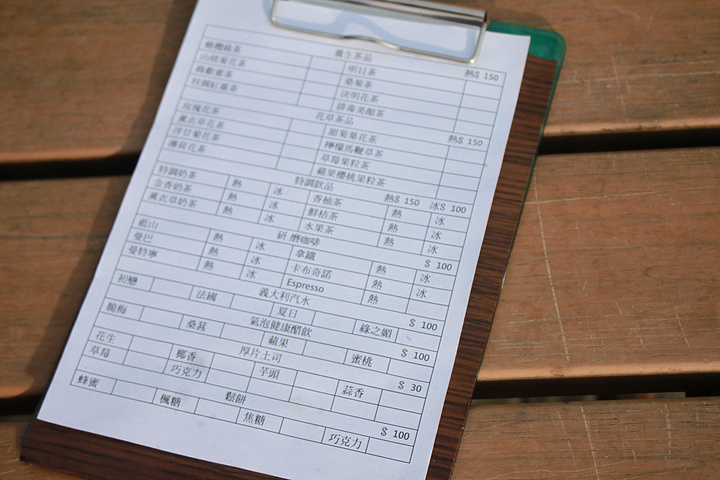 養生茶品 熱$ 150
明日茶
山楂菊花茶 桑菊茶
決明花茶
排毒美顏茶
花草茶品 熱$ 150
玫瑰花茶 甜菊葉花茶
薰衣草花茶 檸檬馬鞭草茶
洋甘菊花茶 草莓果粒茶
薄荷花茶 蘋果櫻桃果粒茶
特調飲品 熱$ 150 冰$ 100
特調奶茶 熱 冰 香柚茶 熱 冰
金香奶茶 熱 冰 鮮桔茶 熱 冰
薰衣草奶茶 熱 冰 水果茶 熱 冰
研磨咖啡 $ 100
藍山 熱 冰 拿鐵 熱 冰
曼巴 熱 冰 卡布奇諾 熱 冰
曼特寧 熱 冰 Espresso 熱 冰
義大利汽水 $ 100
初戀 法國 夏日 綠之媚
氣泡健康醋飲 $ 100
脆梅 桑葚 蘋果 蜜桃
厚片土司 $ 30
花生 椰香 芋頭 蒜香
草莓 巧克力
鬆餅 $ 100
蜂蜜 楓糖 焦糖 巧克力